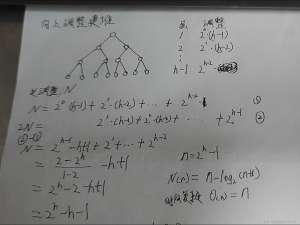 向上调整建堆
层 调整
1 2⁰·(h-1)
2 2¹·(h-2)
⋮
h-1 2ʰ⁻²
总调整 N
N = 2⁰(h-1) + 2¹·(h-2) + ... + 2ʰ⁻²·1 ①
2N = 2¹(h-1) + 2²(h-2) + ... + 2ʰ⁻¹ ②
②-①
N = 2ʰ⁻¹ - h+1 + 2¹ + ... + 2ʰ⁻²
= (2-2ʰ)/(1-2) - h+1
= 2ʰ-2-h+1
= 2ʰ-h-1
n = 2ʰ-1
N(n) = n - log₂(n+1)
O(n) = n